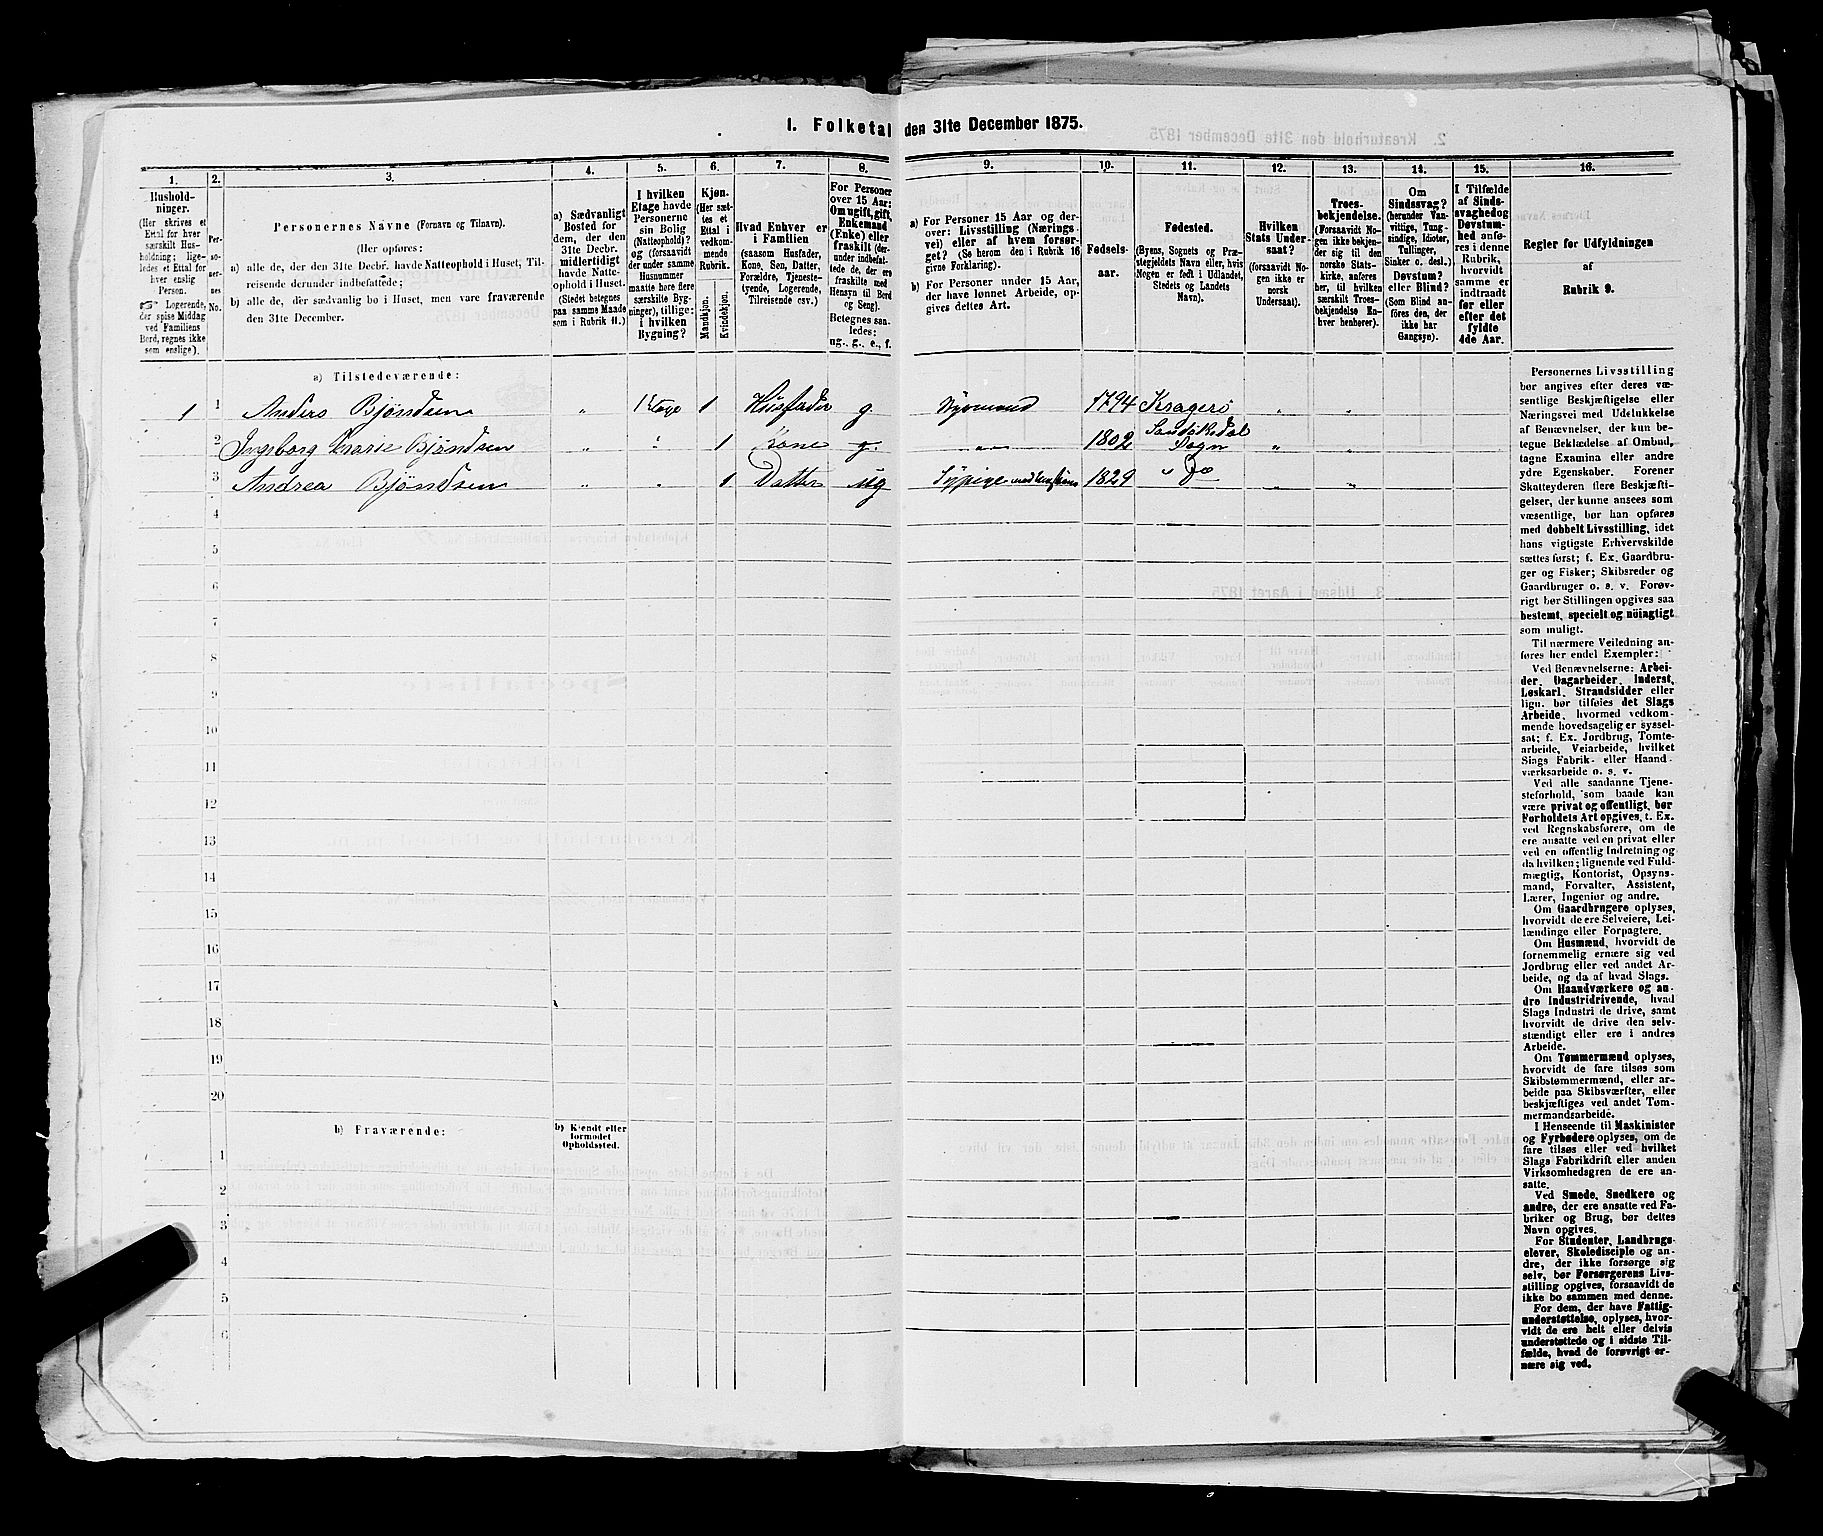 1. Folketal den 31te December 1875.
1. 2. 3. 4. 5. 6. 7. 8. 9. 10. 11. 12. 13. 14. 15. 16.
Hushold-
ninger.
(Her skrives et
Ettal for hver
særskilt Hus-
holdning; lige-
ledes et Ettal for
hver enslig
Person.
☞ Logerende,
der spise Middag
ved Familiens
Bord, regnes ikke
som enslige).
Per-
so-
ner-
nes
No.
Personernes Navne (Fornavn og Tilnavn).
(Her opføres:
a) alle de, der den 31te Decbr. havde Natteophold i Huset, Til-
reisende derunder indbefattede;
b) alle de, der sædvanlig bo i Huset, men vare fraværende
den 31te December.
a) Sædvanligt
Bosted for
dem, der den
31te Decbr.
midlertidigt
havde Natte-
ophold i Huset.
(Stedet betegnes
paa samme Maade
som i Rubrik 11.)
I hvilken
Etage havde
Personerne
sin Bolig
(Natteophold)?
og (forsaavidt
der under samme
Husnummer
maatte høre flere
særskilte Byg-
ninger), tillige:
i hvilken
Bygning?
Kjøn.
(Her sæt-
tes et
Ettal i
vedkom-
mende
Rubrik.
Mandkjøn.
Kvindekjøn.
Hvad Enhver er
i Familien
(saasom Husfader,
Kone, Søn, Datter,
Forældre, Tjeneste-
tyende, Logerende,
Tilreisende osv.)
For Personer
over 15 Aar:
Om ugift, gift,
Enkemand
(Enke) eller
fraskilt (der-
under indbefat-
tede de, der ere
fraskilte med
Hensyn til Bord
og Seng).
Betegnes saa-
ledes:
ug., g., e., f.
a) For Personer 15 Aar og der-
over: Livsstilling (Nærings-
vei) eller af hvem forsør-
get? (Se herom den i Rubrik 16
givne Forklaring).
b) For Personer under 15 Aar,
der have lønnet Arbeide, op-
gives dettes Art.
Fødsels-
aar.
Fødested.
(Byens, Sognets og Præ-
stegjeldets Navn eller, hvis
Nogen er født i Udlandet,
Stedets og Landets
Navn).
Hvilken
Stats Under-
saat?
(forsaavidt No-
gen ikke er
norsk
Undersaat).
Troes-
bekjendelse.
(Forsaavidt No-
gen ikke bekjen-
der sig til den
norske Stats-
kirke, anføres
her, til hvilken
særskilt Troes-
bekjendelse En-
hver henhører).
Om
Sindssvag?
(herunder Van-
vittige, Tung-
sindige, Idioter,
Tullinger,
Sinker o. desl.)
Døvstum?
eller Blind?
(Som Blind an-
føres den, der
ikke har
Gangsyn).
I Tilfælde
af Sinds-
svaghed og
Døvstum-
hed anfø-
res i denne
Rubrik,
hvorvidt
samme er
indtraadt
før eller
efter det
fyldte
4de Aar.
Regler for Udfyldningen
af
Rubrik 9.
a) Tilstedeværende:
1 1 Anders Bjöndsen " 1 Etage 1 Husfader g. 1794 Kragerö " "
2 Ingeborg Marie Bjöndsen " " 1 Kone g. " 1802 Sandökedal Sogn " "
3 Andrea Bjöndsen " " 1 Datter ug Sypige 1829 " Do " "
4
5
6
7
8
9
10
11
12
13
14
15
16
17
18
19
20
b) Fraværende:
b) Kjendt eller
formodet
Opholdssted.
1
2
3
4
5
6
Personernes Livsstilling
bør angives efter deres væ-
sentlige Beskjæftigelse eller
Næringsvei med Udelukkelse
af Benævnelser, der kun be-
tegne Beklædelse af Ombud,
tagne Examina eller andre
ydre Egenskaber. Forener
Skatteyderen flere Beskjæfti-
gelser, der kunne ansees som
væsentlige, bør han opføres
med dobbelt Livsstilling, idet
hans vigtigste Erhvervskilde
sættes først; f. Ex. Gaardbru-
ger og Fisker; Skibsreder og
Gaardbruger o. s. v. Forøv-
rigt bør Stillingen opgives saa
bestemt, specielt og nøiagtigt
som muligt.
Til nærmere Veiledning an-
føres her endel Exempler:
Ved Benævnelserne: Arbei-
der, Dagarbeider, Inderst,
Løskarl, Strandsidder eller
lign. bør tilføies det Slags
Arbeide, hvormed vedkom-
mende hovedsagelig er syssel-
sat; f. Ex. Jordbrug, Tomte-
arbeide, Veiarbeide, hvilket
Slags Fabrik- eller Haand-
værksarbeide o. s. v.
Ved alle saadanne Tjene-
steforhold, som baade kan
være privat og offentligt, bør
Forholdets Art opgives, t. Ex.
ved Regnskabsførere, om de
ere ansatte ved en privat eller
ved en offentlig Indretning og
da hvilken; lignende ved Fuld-
mægtig, Kontorist, Opsyns-
mand, Forvalter, Assistent,
Lærer, Ingeniør og andre.
Om Gaardbrugere oplyses,
hvorvidt de ere Selveiere, Lei-
lændinge eller Forpagtere.
Om Husmænd, hvorvidt de
fornemmelig ernære sig ved
Jordbrug eller ved andet Ar-
beide, og da af hvad Slags.
Om Haandværkere og an-
dre Industridrivende, hvad
Slags Industri de drive, samt
hvorvidt de drive den selv-
stændigt eller ere i andres
Arbeide.
Om Tømmermænd oplyses,
hvorvidt de fare tilsøs som
Skibstømmermænd, eller ar-
beide paa Skibsværfter, eller
beskjæftiges ved andet Tøm-
mermandsarbeide.
I Henseende til Maskinister
og Fyrbødere oplyses, om de
fare tilsøs eller ved hvilket
Slags Fabrikdrift eller anden
Virksomhedsgren de ere an-
satte.
Ved Smede, Snedkere og
andre, der ere ansatte ved Fa-
briker og Brug, bør dettes
Navn opgives.
For Studenter, Landbrugs-
elever, Skoledisciple og an-
dre, der ikke forsørge sig
selv, bør Forsørgerens Livs-
stilling opgives, forsaavidt de
ikke bo sammen med denne.
For dem, der have Fattig-
understøttelse, oplyses, hvor-
vidt de ere helt eller delvis
understøttede og i sidste Til-
fælde, hvad de forøvrigt er-
nære sig ved.